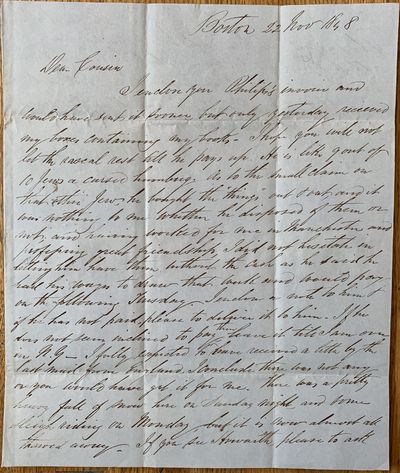 Boston 22 Nov 1848
Dear Cousin
I enclose you Philips invoice and
would have sent it sooner but only yesterday received
my boxes containing my books. I hope you will not
let the rascal rest till he pays up. He is like 9 out of
10 Jews a cursed humbug. As to the small claim on
that other Jew he bought the things out & out and it
was nothing to me whether he disposed of them or
not, and having worked for me in Manchester and
professing great friendship, I did not hesitate in
letting him have them without the cash as he said he
had his wages to draw that week and would pay
on the following Thursday. I enclose a note to him &
if he has not paid please to deliver it to him. If he
does not seem inclined to pay then leave it till I am over
in N.Y. I fully expected to have received a letter by the
last mail from England. I conclude there was not any
or you would have sent it for me. There was a pretty
heavy fall of snow here on Sunday night and some
sleigh riding on Monday but it is now almost all
thawed away. If you see Howarth please to ask